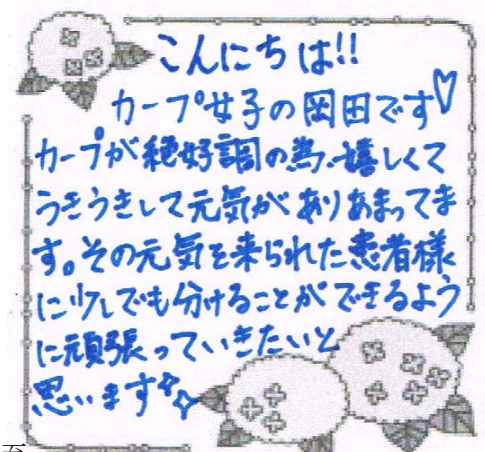 こんにちは!!
カープ女子の岡田です♡
カープが絶好調の為、嬉しくて
うきうきして元気がありあまってま
す。その元気を来られた患者様
に少しでも分けることができるよう
に頑張っていきたいと
思います